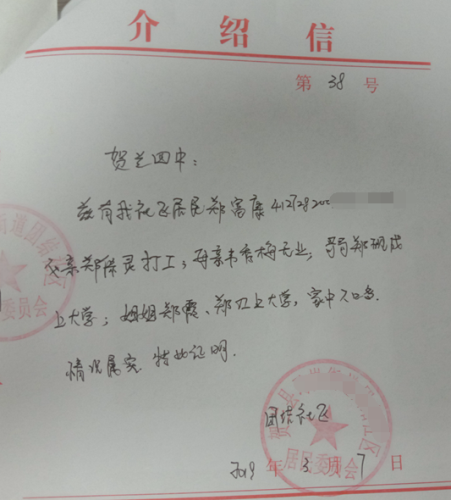 介绍信
第 38 号
贺兰四中:
兹有我社区居民郑富康 412728200
父亲郑 灵打工,母亲韦香梅无业,郑 
上大学;姐姐郑霞、郑 上大学,家中 口
情况属实 特此证明.
团结社区
2019 年 3 月 7 日
街道团结
委员会
贺 县
区
居民委员会